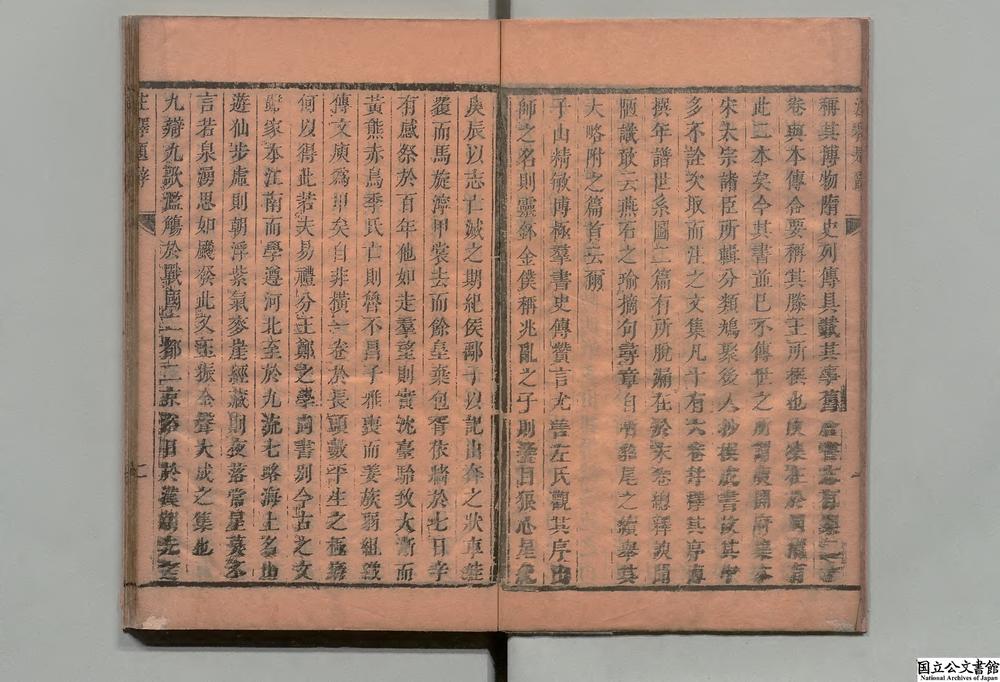 稱其博物隋史列傳具載其事舊唐書
卷與本傳合要稱其滕王所撰也
此二本矣今其書並巳不傳世之所謂庾開府集本
宋太宗諸臣所輯分類鳩聚後人抄撰成書故其中
多不詮次取而注之文集凡十有六卷并釋其序傳
撰年譜世系圖二篇有所脫漏在於末卷總釋
陋識敢云燕石之瑜摘句尋章自附貂尾之續舉其
大略附之篇首云爾
子山精敏博極羣書史傳贊言尤善左氏觀其序出
師之名則靈鉟金僕稱兆亂之子則狼心
庾辰以志亡滅之期紀侯郬子以記出奔之狀車
而馬旋濘甲裳去而餘皇棄包胥依牆於七日辛
有感祭於百年他如走羣望則實沈臺駘致大漸而
黃熊赤鳥季氏亡則魯不昌子雅喪而姜族弱組織
傳文庾爲甲矣自非橫一卷於長頭數平生之極
何以得此若夫易禮分王鄭之學尚書别今古之文
家本江南而學遵河北至於九流七略海上名山
遊仙步虛則朝浮紫氣麥崖經藏則夜落常星
言若泉湧思如飈發此又玉振金聲大成之集也
九辯九歌濫觴於戰國二都二京
注釋題辭
二
国立公文書館
National Archives of Japan